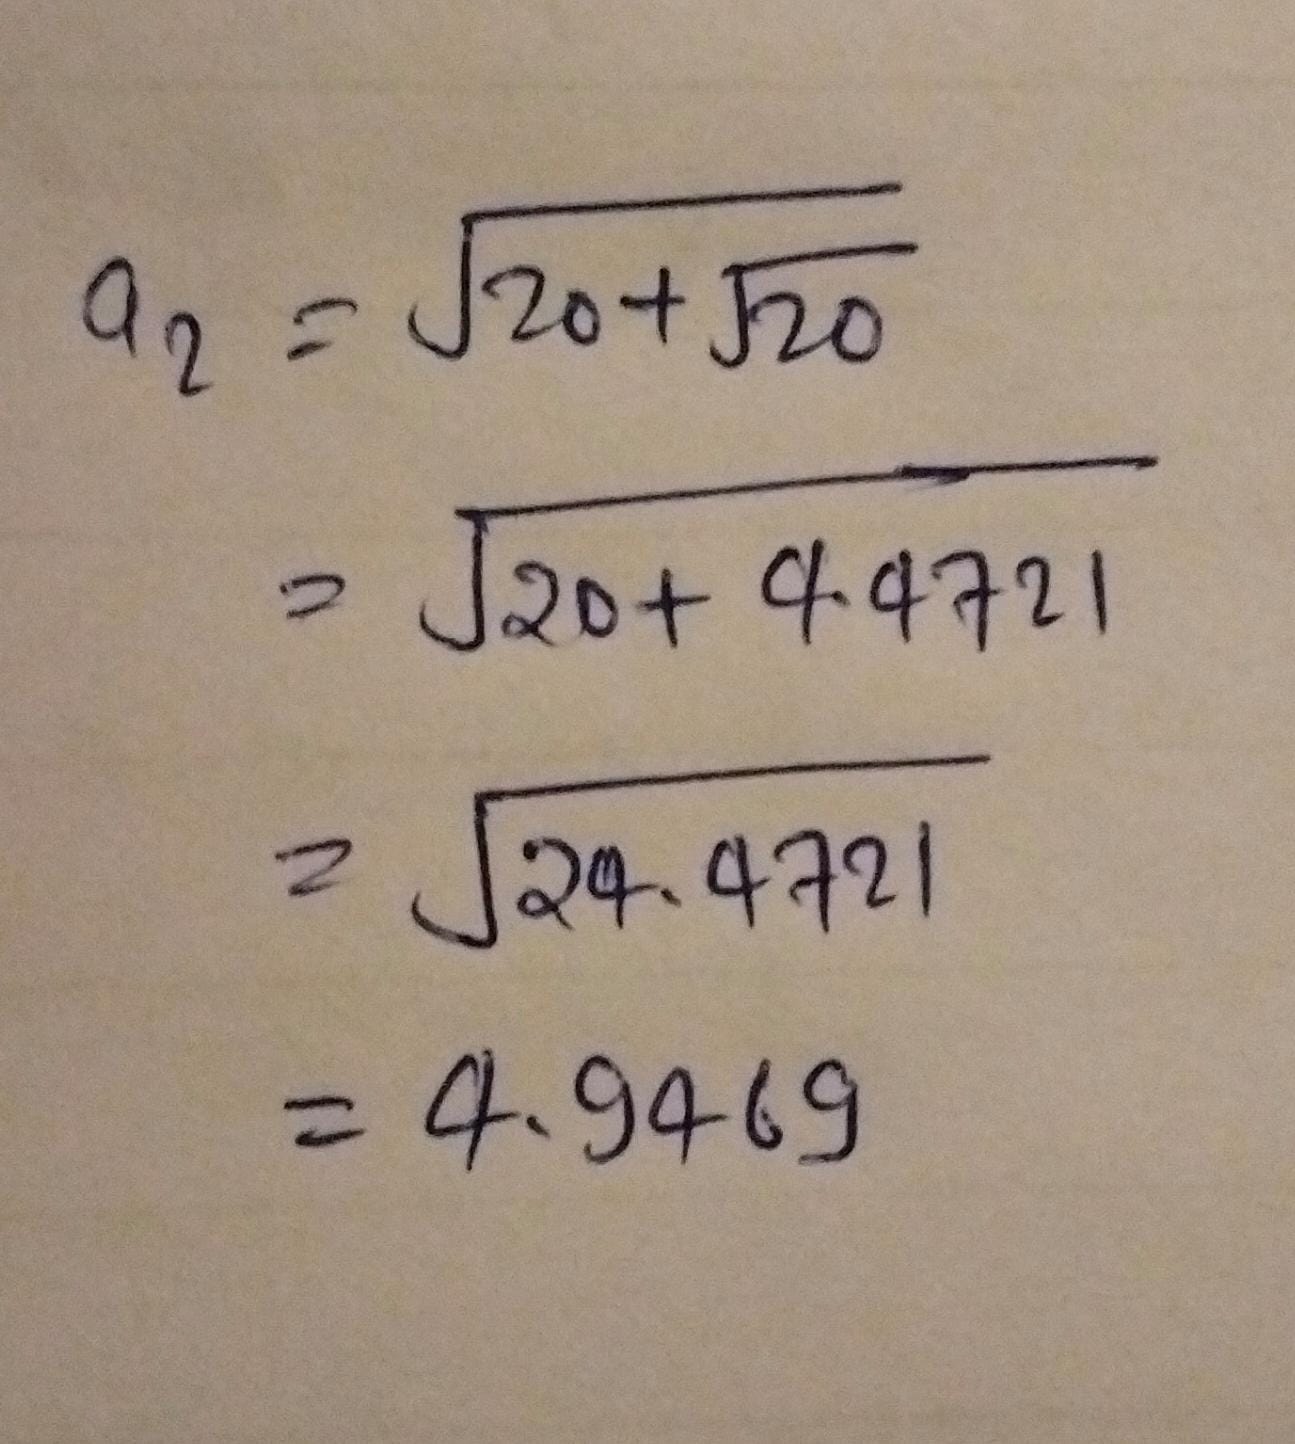 a₂ = √(20+√20)
= √(20+ 4.4721)
= √(24.4721)
= 4.9469